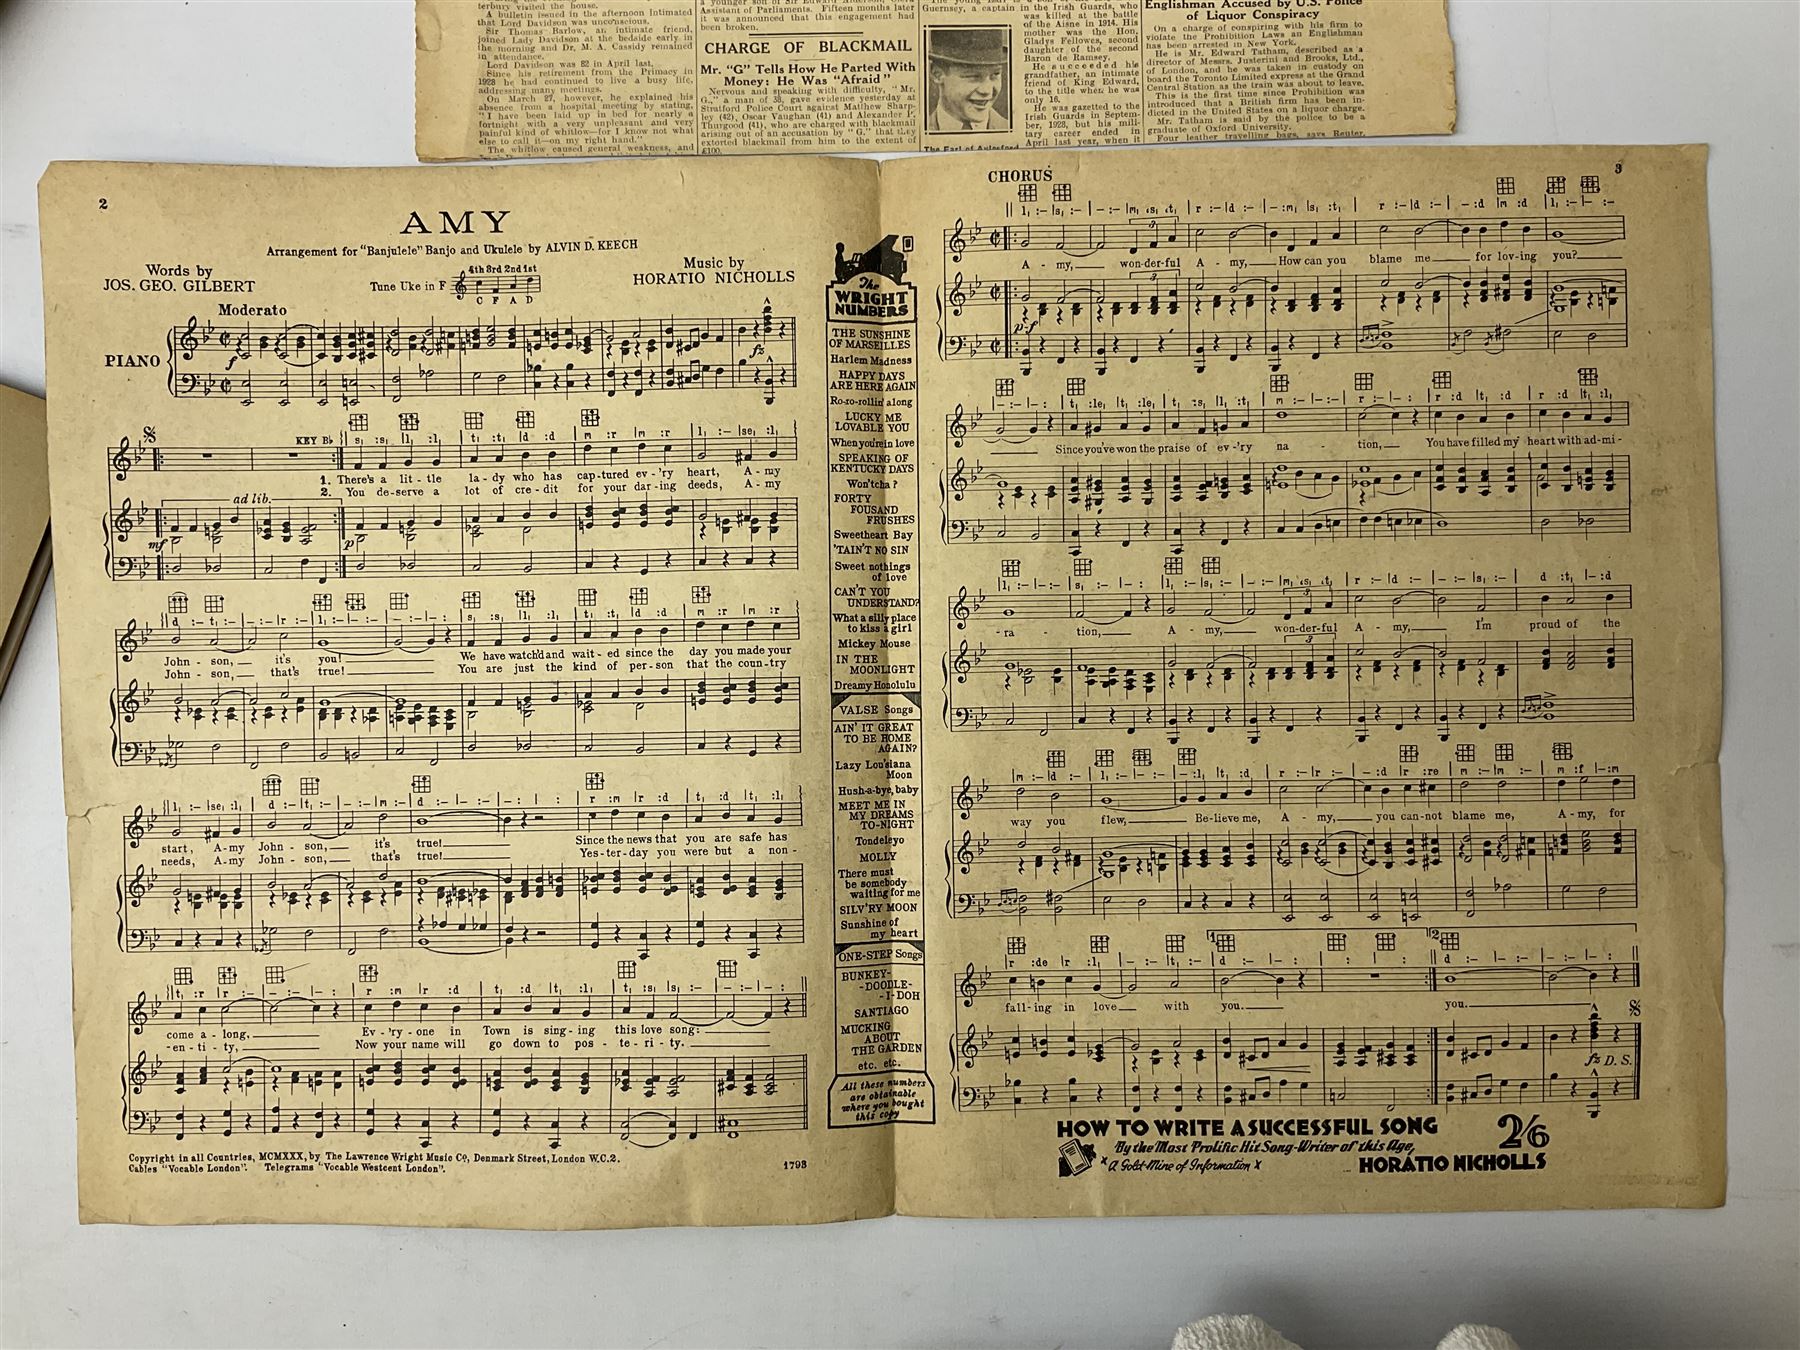 terbury visited the house.
A bulletin issued in the afternoon intimated
that Lord Davidson was unconscious.
Sir Thomas Barlow, an intimate friend,
joined Lady Davidson at the bedside early in
the morning and Dr. M. A. Cassidy remained
in attendance.
Lord Davidson was 82 in April last.
Since his retirement from the Primacy in
1928 he had continued to live a busy life,
addressing many meetings.
On March 27, however, he explained his
absence from a hospital meeting by stating,
"I have been laid up in bed for nearly a
fortnight with a very unpleasant and very
painful kind of whitlow—for I know not what
else to call it—on my right hand."
The whitlow caused general weakness, and
Assistant of Parliaments. Fifteen months later
it was announced that this engagement had
been broken.
CHARGE OF BLACKMAIL
Mr. "G" Tells How He Parted With
Money: He Was "Afraid"
Nervous and speaking with difficulty, "Mr.
G.," a man of 38, gave evidence yesterday at
Stratford Police Court against Matthew Sharp-
ley (42), Oscar Vaughan (41) and Alexander P.
Thurgood (41), who are charged with blackmail
arising out of an accusation by "G." that they
extorted blackmail from him to the extent of
£100.
Guernsey, a captain in the Irish Guards, who
was killed at the battle
of the Aisne in 1914. His
mother was the Hon.
Gladys Fellowes, second
daughter of the second
Baron de Ramsey.
He succeeded his
grandfather, an intimate
friend of King Edward,
to the title when he was
only 16.
He was gazetted to the
Irish Guards in Septem-
ber, 1928, but his mili-
tary career ended in
April last year, when it
The Earl of Aylesford
Englishman Accused by U.S. Police
of Liquor Conspiracy
On a charge of conspiring with his firm to
violate the Prohibition Laws an Englishman
has been arrested in New York.
He is Mr. Edward Tatham, described as a
director of Messrs. Justerini and Brooks, Ltd.,
of London, and he was taken in custody on
board the Toronto Limited express at the Grand
Central Station as the train was about to leave.
This is the first time since Prohibition was
introduced that a British firm has been in-
dicted in the United States on a liquor charge.
Mr. Tatham is said by the police to be a
graduate of Oxford University.
Four leather travelling bags, says Reuter,
2
AMY
Arrangement for "Banjulele" Banjo and Ukulele by ALVIN D. KEECH
Words by
JOS. GEO. GILBERT
Tune Uke in F
4th 3rd 2nd 1st
C F A D
Music by
HORATIO NICHOLLS
Moderato
PIANO
f
fz
KEY B♭
s₁ :s₁ |l₁ :l₁ | t₁ :t₁ |d :d | m :r |m :r | l₁ :– |se₁ :l₁
1. There's a lit - tle la - dy who has cap-tured ev -'ry heart, A - my
2. You de-serve a lot of cre - dit for your dar - ing deeds, A - my
ad lib.
mf
p
John - son, it's you! We have watch'd and wait - ed since the day you made your
John - son, that's true! You are just the kind of per - son that the coun - try
start, A-my John - son, it's true! Since the news that you are safe has
needs, A-my John - son, that's true! Yes - ter - day you were but a non -
come a - long, Ev -'ry - one in Town is sing - ing this love song:
- en - ti - ty, Now your name will go down to pos - te - ri - ty.
Copyright in all Countries, MCMXXX, by The Lawrence Wright Music Co, Denmark Street, London W.C.2.
Cables "Vocable London". Telegrams "Vocable Westcent London".
1793
The
WRIGHT
NUMBERS
THE SUNSHINE
OF MARSEILLES
Harlem Madness
HAPPY DAYS
ARE HERE AGAIN
Ro-ro-rollin' along
LUCKY ME
LOVABLE YOU
When you're in love
SPEAKING OF
KENTUCKY DAYS
Won'tcha?
FORTY
FOUSAND
FRUSHES
Sweetheart Bay
'TAIN'T NO SIN
Sweet nothings
of love
CAN'T YOU
UNDERSTAND?
What a silly place
to kiss a girl
Mickey Mouse
IN THE
MOONLIGHT
Dreamy Honolulu
VALSE Songs
AIN' IT GREAT
TO BE HOME
AGAIN?
Lazy Lou'siana
Moon
Hush-a-bye, baby
MEET ME IN
MY DREAMS
TO-NIGHT
Tondeleyo
MOLLY
There must
be somebody
waiting for me
SILV'RY MOON
Sunshine of
my heart
ONE-STEP Songs
BUNKEY-
-DOODLE-
-I-DOH
SANTIAGO
MUCKING
ABOUT
THE GARDEN
etc. etc.
All these numbers
are obtainable
where you bought
this copy
3
CHORUS
A - my, won-der-ful A - my, How can you blame me for lov-ing you?
p-f
Since you've won the praise of ev -'ry na - tion, You have filled my heart with ad-mi-
- ra - tion, A - my, won-der-ful A - my, I'm proud of the
way you flew, Be-lieve me, A - my, you can-not blame me, A-my, for
fall-ing in love with you. you.
1
2
fz D.S.
HOW TO WRITE A SUCCESSFUL SONG
2/6
By the Most Prolific Hit Song-Writer of this Age,
x A Gold-Mine of Information x
HORATIO NICHOLLS